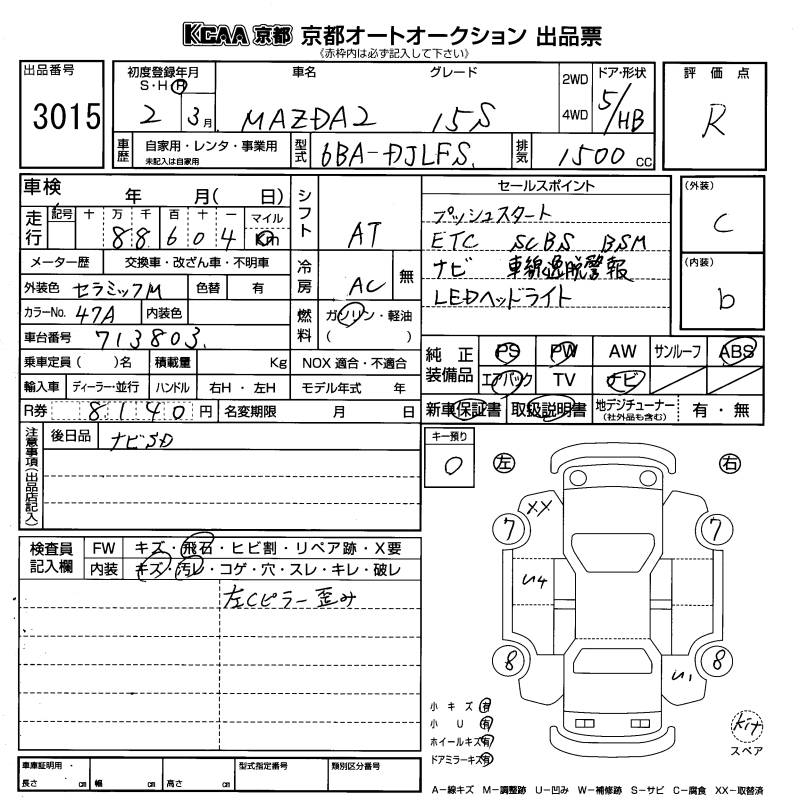 KCAA 京都 京都オートオークション 出品票
《赤枠内は必ず記入して下さい》
出品番号
3015
初度登録年月
S・H・R
2 3月
車名
MAZDA2
グレード
15S
2WD
4WD
ドア・形状
5/HB
評価点
R
車歴
自家用・レンタ・事業用
未記入は自家用
型式
6BA-DJLFS
排気
1500 cc
車検
年 月( 日)
走行
記号 十 万 千 百 十 一 マイル
88604 Km
メーター歴 交換車・改ざん車・不明車
外装色 セラミックM 色替 有
カラーNo. 47A 内装色
車台番号 713803
乗車定員( )名 積載量 Kg
輸入車 ディーラー・並行 ハンドル 右H・左H
R券 8140円 名変期限 月 日
シフト
AT
冷房
AC 無
燃料
ガソリン・軽油
( )
NOX 適合・不適合
モデル年式 年
セールスポイント
プッシュスタート
ETC SCBS BSM
ナビ 車線逸脱警報
LEDヘッドライト
(外装)
C
(内装)
b
純正装備品
PS PW AW サンルーフ ABS
エアバック TV ナビ
新車保証書 取扱説明書 地デジチューナー(社外品も含む) 有・無
注意事項(出品店記入)
後日品 ナビSD
キー預り
0
左 右
検査員記入欄
FW キズ・飛石・ヒビ割・リペア跡・X要
内装 キズ・汚レ・コゲ・穴・スレ・キレ・破レ
左Cピラー歪み
XX
7 7
い4
8 8
い1
小キズ 有
小U 有
ホイールキズ 有
ドアミラーキズ 有
kit
スペア
車庫証明用・
長さ cm 幅 cm 高さ cm
型式指定番号
類別区分番号
A－線キズ M－調整跡 U－凹み W－補修跡 S－サビ C－腐食 XX－取替済